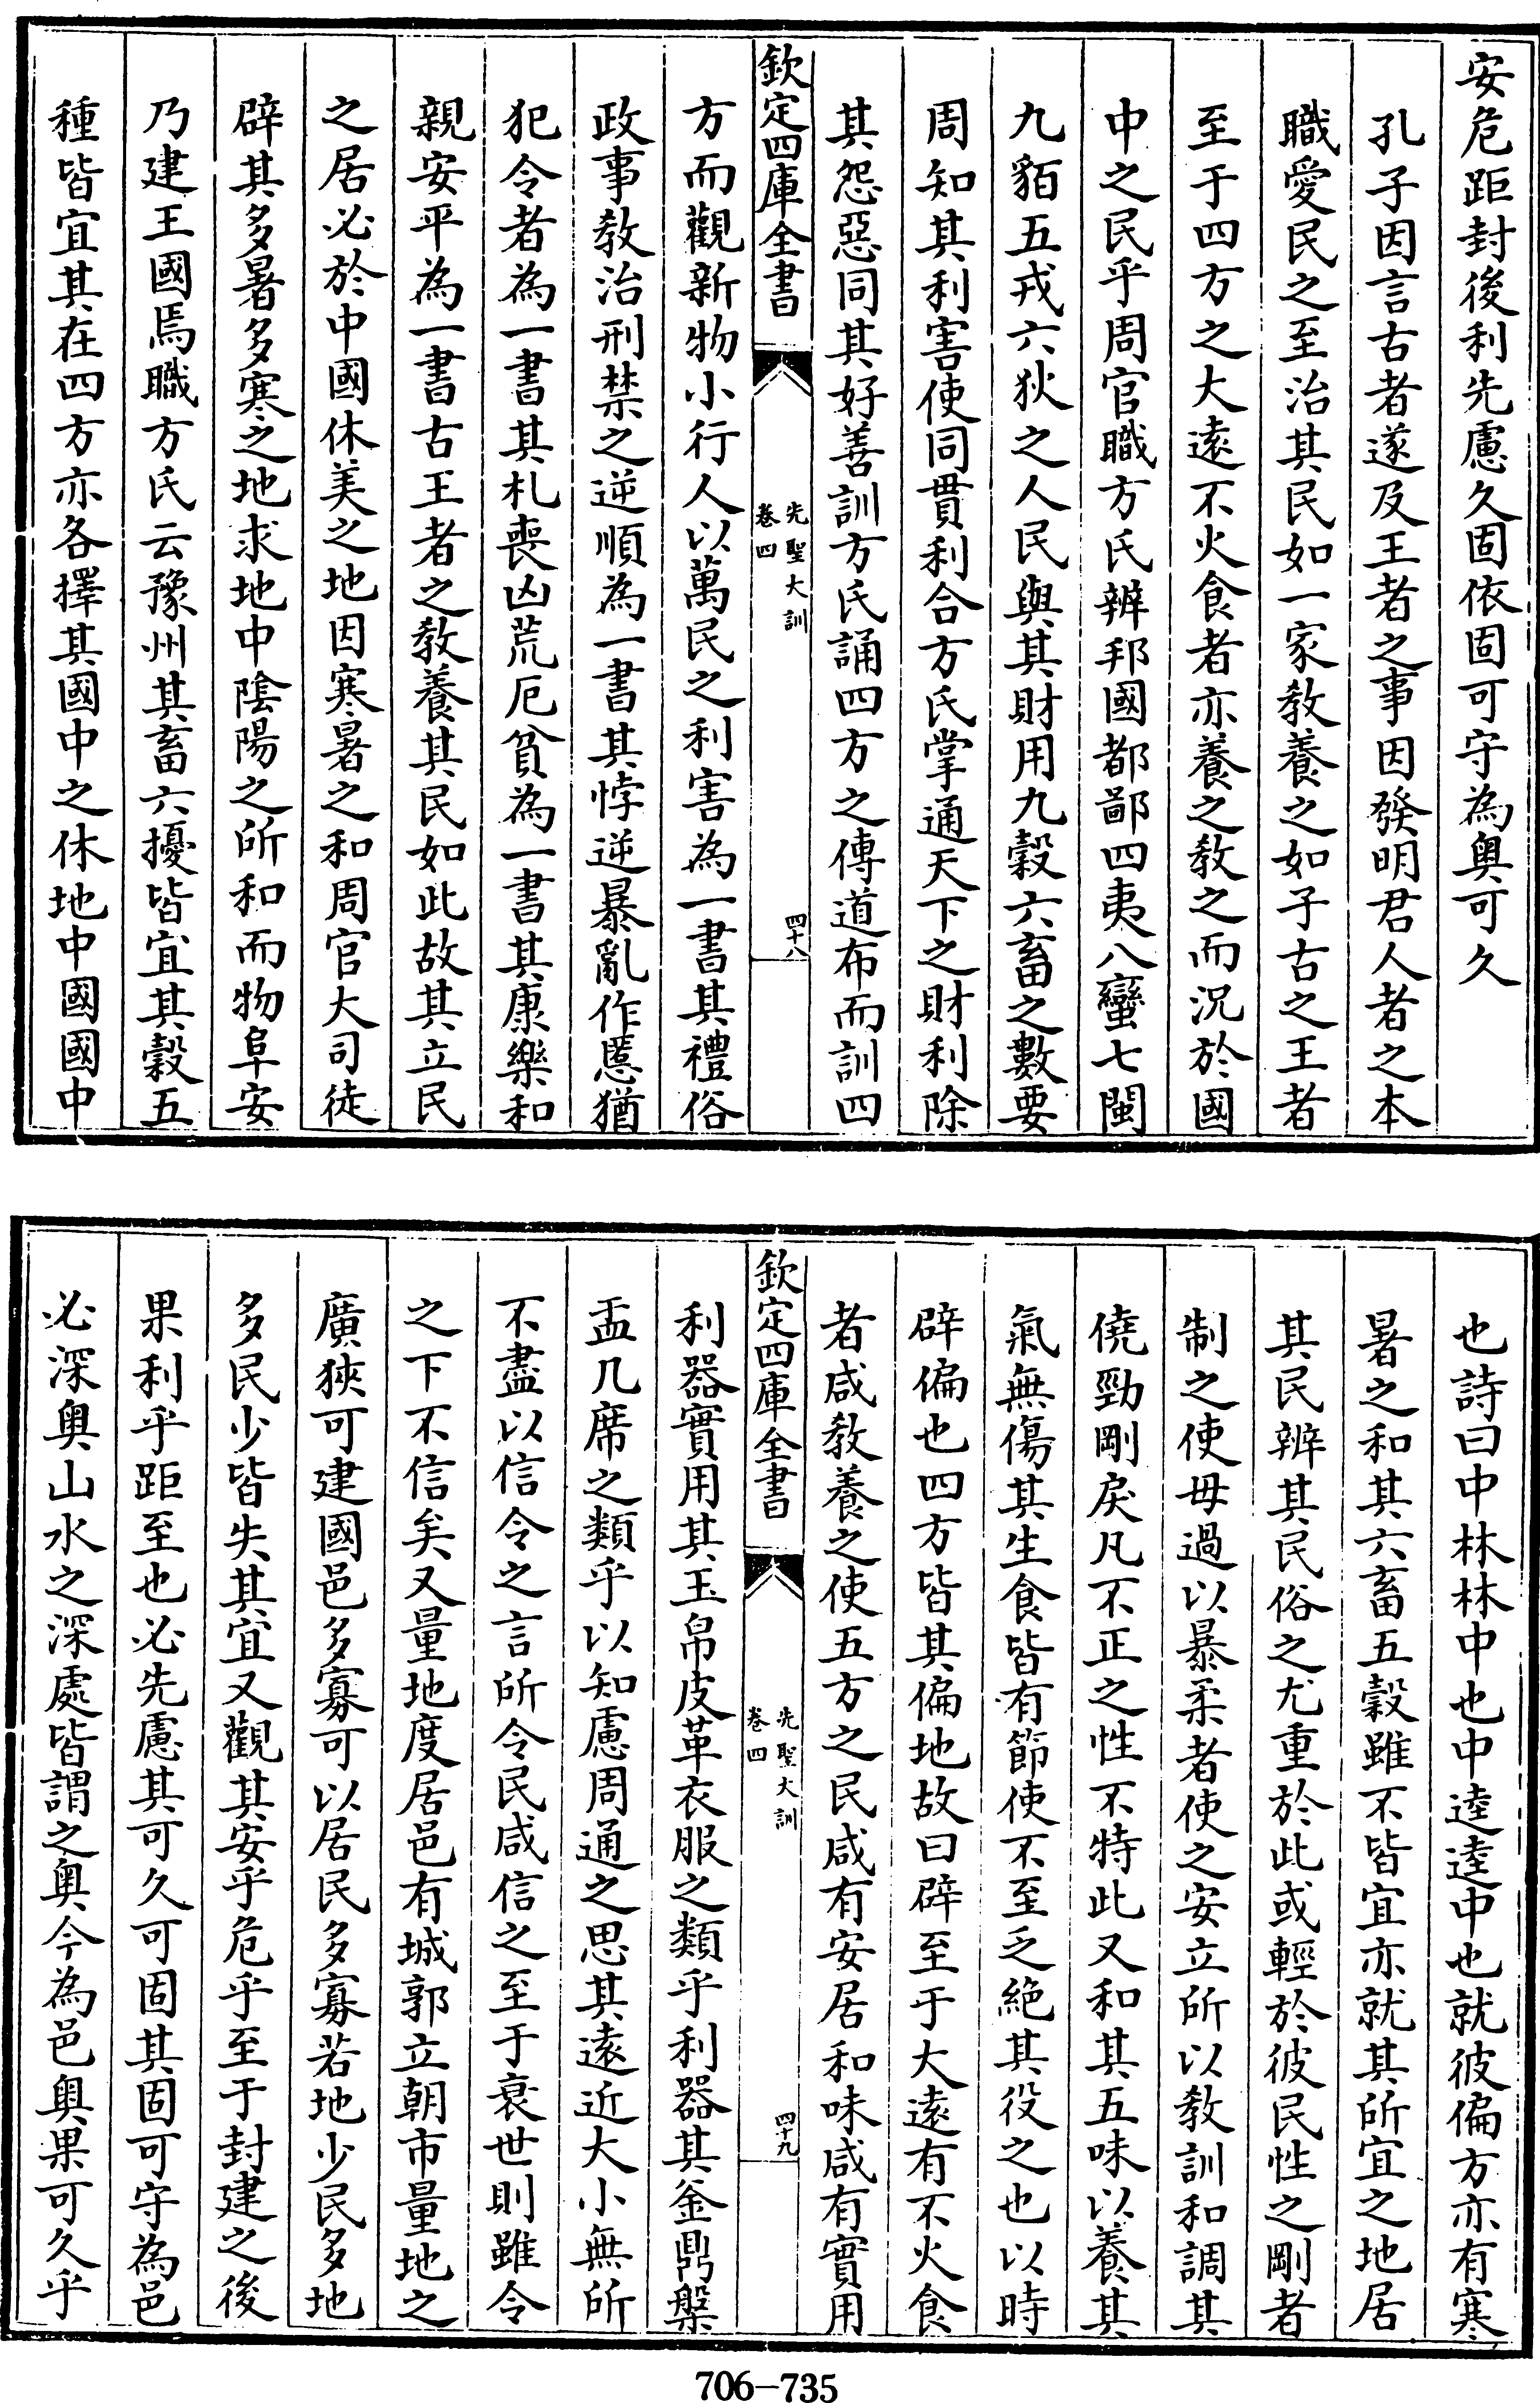 安危距封後利先慮久固依固可守為奥可久
孔子因言古者遂及王者之事因發明君人者之本
職愛民之至治其民如一家教養之如子古之王者
至于四方之大遠不火食者亦養之教之而況於國
中之民乎周官職方氏辨邦國都鄙四夷八蠻七閩
九貊五戎六狄之人民與其財用九穀六畜之數要
周知其利害使同貫利合方氏掌通天下之財利除
其怨惡同其好善訓方氏誦四方之傳道布而訓四
欽定四庫全書
先聖大訓
卷四
四十八
方而觀新物小行人以萬民之利害為一書其禮俗
政事教治刑禁之逆順為一書其悖逆暴亂作慝猶
犯令者為一書其札喪凶荒厄貧為一書其康樂和
親安平為一書古王者之教養其民如此故其立民
之居必於中國休美之地因寒暑之和周官大司徒
辟其多暑多寒之地求地中陰陽之所和而物阜安
乃建王國焉職方氏云豫州其畜六擾皆宜其穀五
種皆宜其在四方亦各擇其國中之休地中國國中
也詩曰中林林中也中逵逵中也就彼偏方亦有寒
暑之和其六畜五穀雖不皆宜亦就其所宜之地居
其民辨其民俗之尤重於此或輕於彼民性之剛者
制之使毋過以暴柔者使之安立所以教訓和調其
僥勁剛戾凡不正之性不特此又和其五味以養其
氣無傷其生食皆有節使不至乏絶其役之也以時
辟偏也四方皆其偏地故曰辟至于大遠有不火食
者咸教養之使五方之民咸有安居和味咸有實用
欽定四庫全書
先聖大訓
卷四
四十九
利器實用其玉帛皮革衣服之類乎利器其釜鼎槃
盂几席之類乎以知慮周通之思其遠近大小無所
不盡以信令之言所令民咸信之至于衰世則雖令
之下不信矣又量地度居邑有城郭立朝市量地之
廣狹可建國邑多寡可以居民多寡若地少民多地
多民少皆失其宜又觀其安乎危乎至于封建之後
果利乎距至也必先慮其可久可固其固可守為邑
必深奥山水之深處皆謂之奥今為邑奥果可久乎
706-735